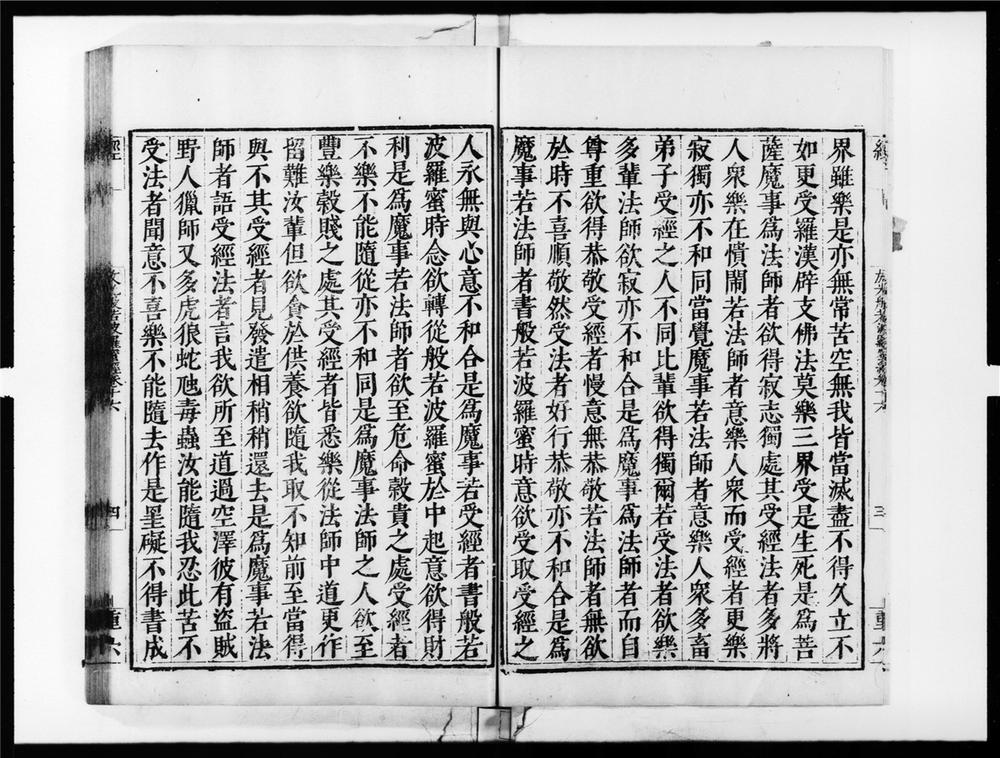 界雖樂是亦無常苦空無我皆當滅盡不得久立不
如更受羅漢辟支佛法莫樂三界受是生死是為菩
薩魔事為法師者欲得寂志獨處其受經法者多將
人衆樂在憒閙若法師者意樂人衆而受經者更樂
寂獨亦不和同當覺魔事若法師者意樂人衆多畜
弟子受經之人不同比輩欲得獨爾若受法者欲樂
多輩法師欲寂亦不和合是為魔事為法師者而自
尊重欲得恭敬受經者慢意無恭敬若法師者無欲
於時不喜順敬然受法者好行恭敬亦不和合是為
魔事若法師者書般若波羅蜜時意欲受取受經之
人永無與心意不和合是為魔事若受經者書般若
波羅蜜時念欲轉從般若波羅蜜於中起意欲得財
利是為魔事若法師者欲至危命穀貴之處受經者
不樂不能隨從亦不和同是為魔事法師之人欲至
豐樂穀賤之處其受經者皆悉樂從法師中道更作
留難汝輩但欲貪於供養欲隨我取不知前至當得
與不其受經者見發遣相稍稍還去是為魔事若法
師者語受經法者言我欲所至道過空澤彼有盜賊
野人獵師又多虎狼蛇虺毒蟲汝能隨我忍此苦不
受法者聞意不喜樂不能隨去作是罣礙不得書成
經
四